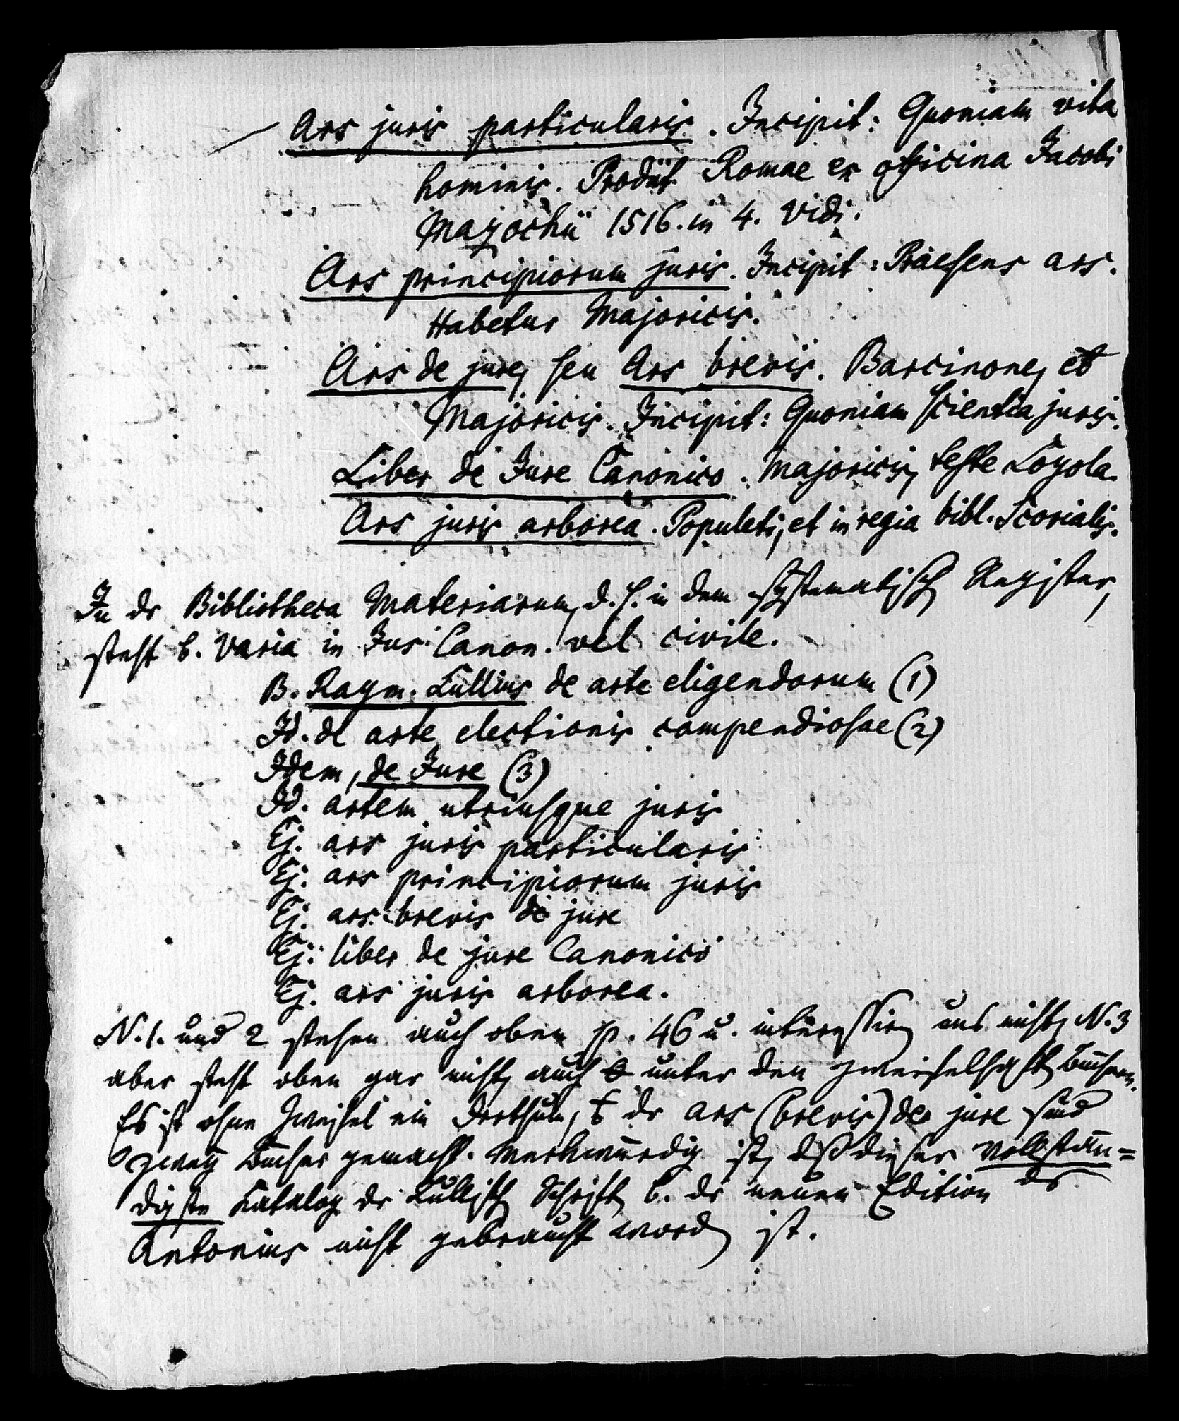 Ars juris particularis. Incipit: Quoniam vita
hominis. Prodiit Romae ex officina Jacobi
Mazochii 1516. in 4. vidi.
Ars principiorum juris. Incipit: Praesens ars.
Habetur Majoricis.
Ars de jure, seu Ars brevis. Barcinone, et
Majoricis. Incipit: Quoniam scientia juris.
Liber de Jure Canonico. Majoricis, teste Loyola.
Ars juris arborea. Populeti, et in regia bibl. Scorialis.
In dr Bibliotheca Materiarum, d. h. in dem systematisch Register,
steht b. varia in Jus Canon. vel civile.
B. Raym. Lullus de arte eligendorum (1)
Id. de arte electionis compendiosae (2)
Idem, de Jure (3)
Id. artem utriusque juris
Ej. ars juris particularis
Ej. ars principiorum juris
Ej. ars brevis de jure
Ej. liber de jure Canonico
Ej. ars juris arborea.
N. 1. und 2 stehen auch oben p. 46 u. interessirn uns nicht, N. 3
aber steht oben gar nicht, auch unter den zweifelhaft Büchern.
Es ist ohne Zweifel ein Irrthum, dr ars (brevis) de jure sind
zwey Bücher gemacht. Merkwürdig ist, dß dieser vollstän=
digste Katalog dr Lullisch Schrift b. dr neuen Edition ds
Antonius nicht gebraucht word ist.